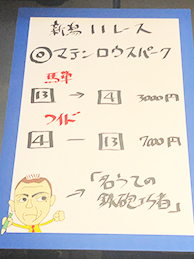 新潟11レース
◎マテンロウスパーク
馬単
13→4 3000円
ワイド
4―13 7000円
→「名うての
鉄砲巧者」